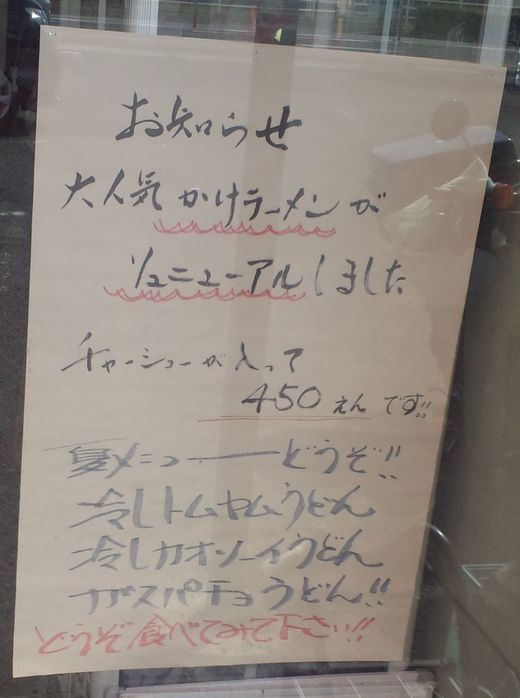 お知らせ
大人気かけラーメンが
リュニューアルしました
チャーシューが入って
450えんです!!
夏メニューーどうぞ!!
冷しトムヤムうどん
冷しカオソーイうどん
ガスパチョうどん!!
どうぞ食べてみて下さい!!